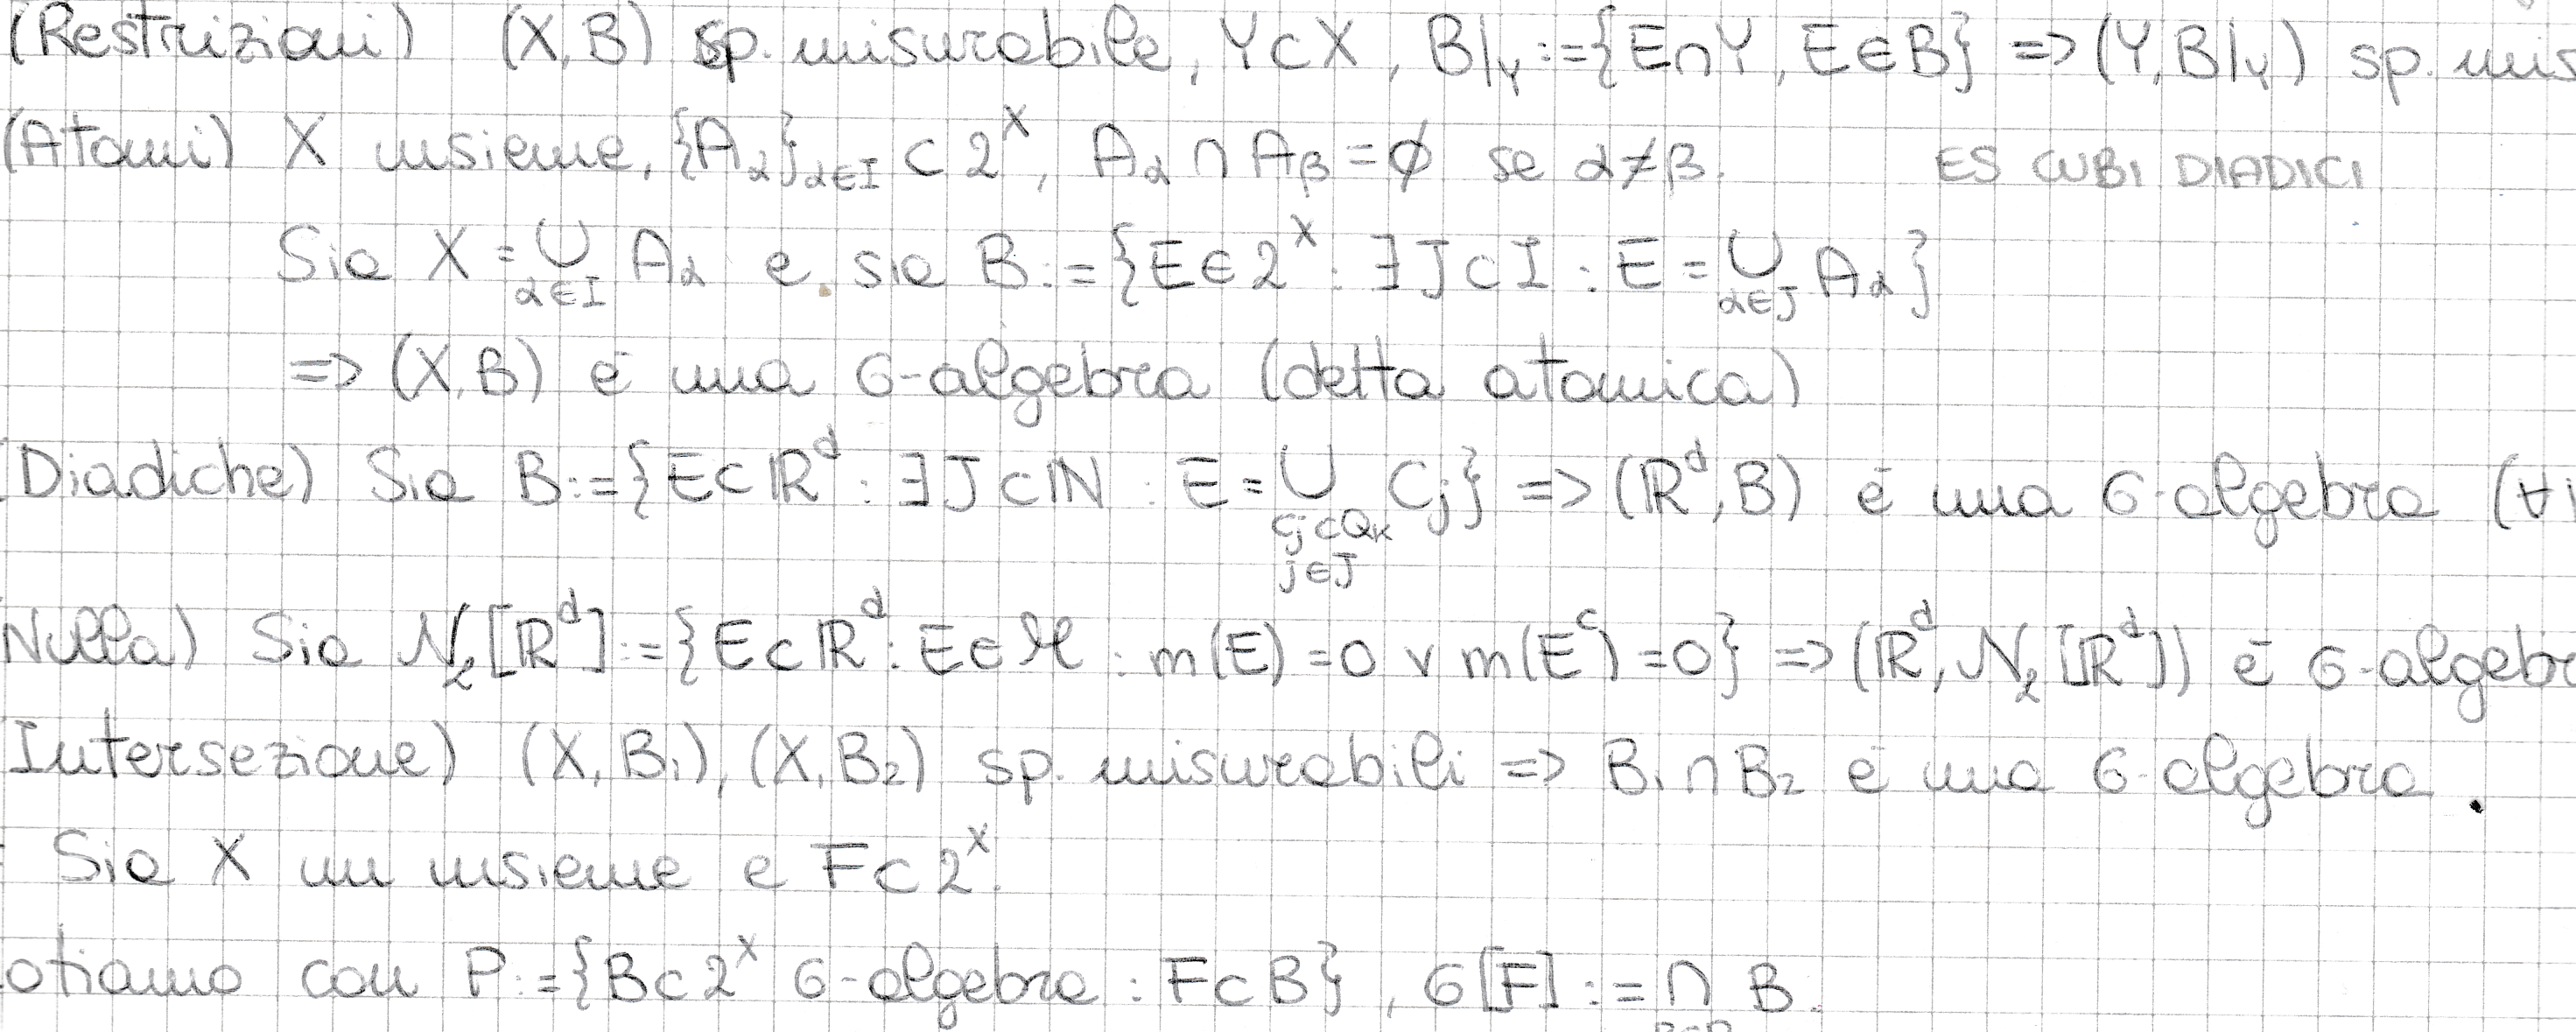 (Restrizioni) (X, B) sp. misurabile, Y⊂X, B|_Y := {E∩Y, E∈B} => (Y, B|_Y) sp. mis
(Atomi) X insieme, {A_α}_{α∈I} ⊂ 2^X, A_α ∩ A_β = ∅ se α≠β. ES CUBI DIADICI
Sia X = ∪_{α∈I} A_α e sia B := {E∈2^X : ∃ J⊂I : E = ∪_{α∈J} A_α}
=> (X, B) è una σ-algebra (detta atomica)
(Diadiche) Sia B := {E⊂ℝ^d : ∃ J⊂ℕ : E = ∪_{C_j⊂Q_k, j∈J} C_j} => (ℝ^d, B) è una σ-algebra (∀
Nulla) Sia 𝒩_2[ℝ^d] := {E⊂ℝ^d : E∈ℳ : m(E)=0 ∨ m(E^c)=0} => (ℝ^d, 𝒩_2[ℝ^d]) è σ-algebr
Intersezione) (X, B_1), (X, B_2) sp. misurabili => B_1 ∩ B_2 è una σ-algebra.
Sia X un insieme e F⊂2^X.
otiamo con P := {B⊂2^X σ-algebra : F⊂B}, σ[F] := ∩ B.